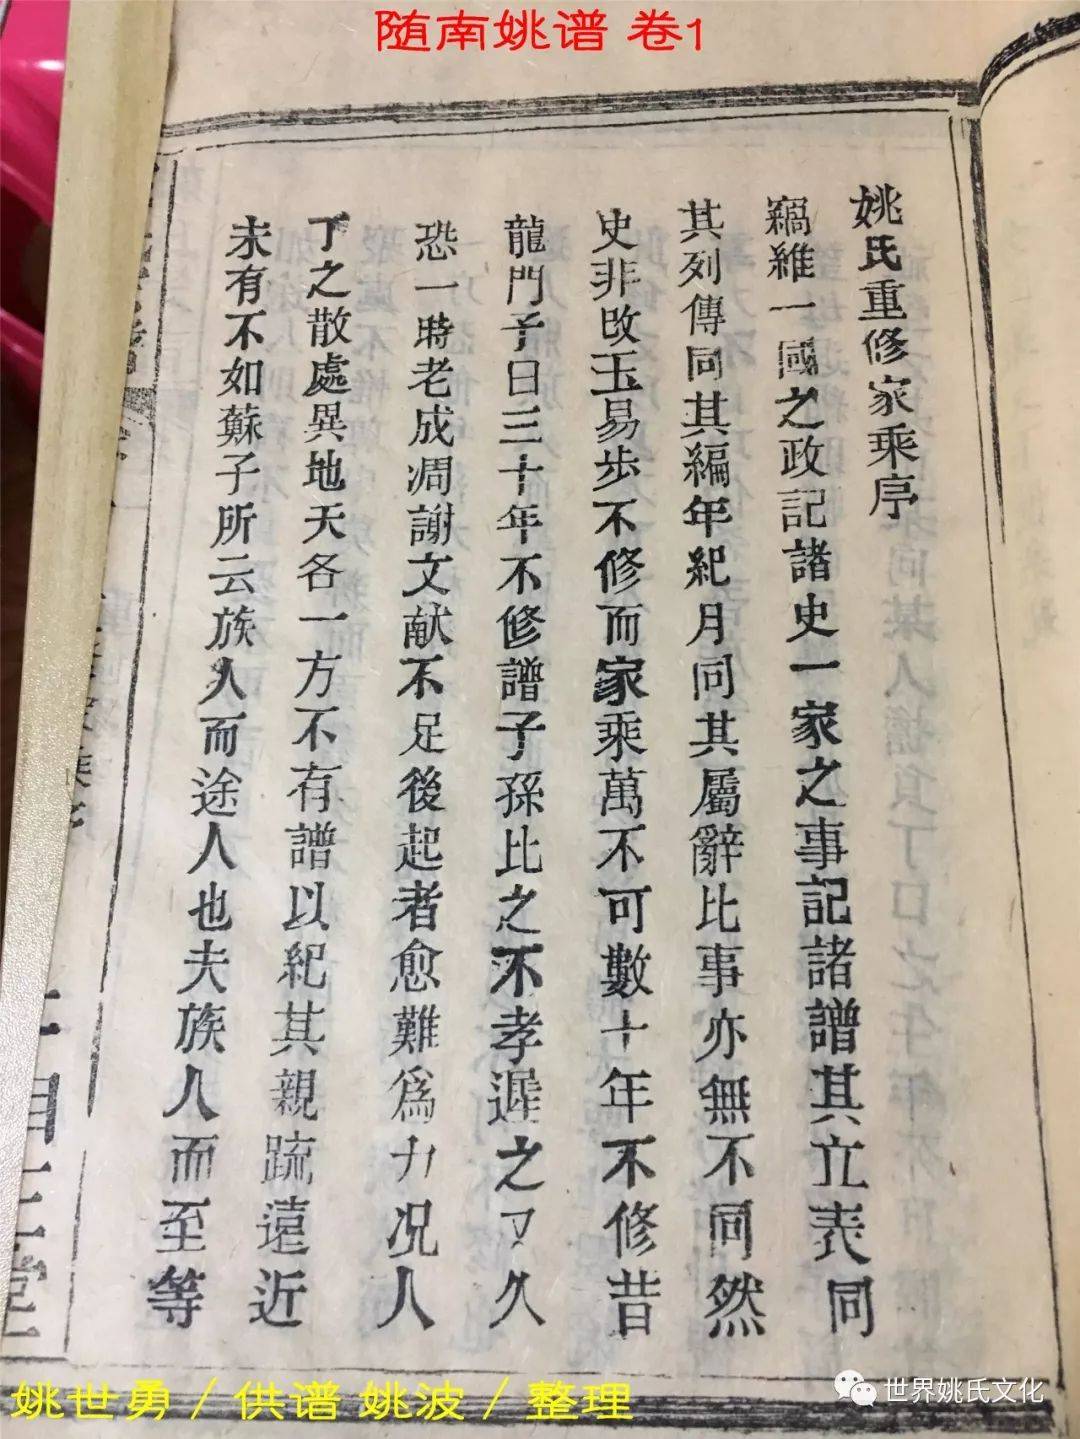 随南姚谱 卷1
姚氏重修家乘序
竊維一國之政記諸史一家之事記諸譜其立表同
其列傳同其編年紀月同其屬辭比事亦無不同然
史非改玉易步不修而家乘萬不可數十年不修昔
龍門子曰三十年不修譜子孫比之不孝遲之又久
恐一時老成凋謝文献不足後起者愈難為力况人
丁之散處異地天各一方不有譜以紀其親疏遠近
未有不如蘇子所云族人而途人也夫族人而至等
姚世勇/供谱 姚波/整理
世界姚氏文化